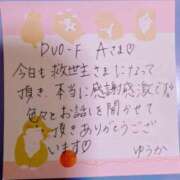 DUO-F Aさま♡
今日も救世主さまになって
頂き、本当に感謝感激です♡
色々とお話しを聞かせて
頂きありがとうござ
います♡
ゆうか